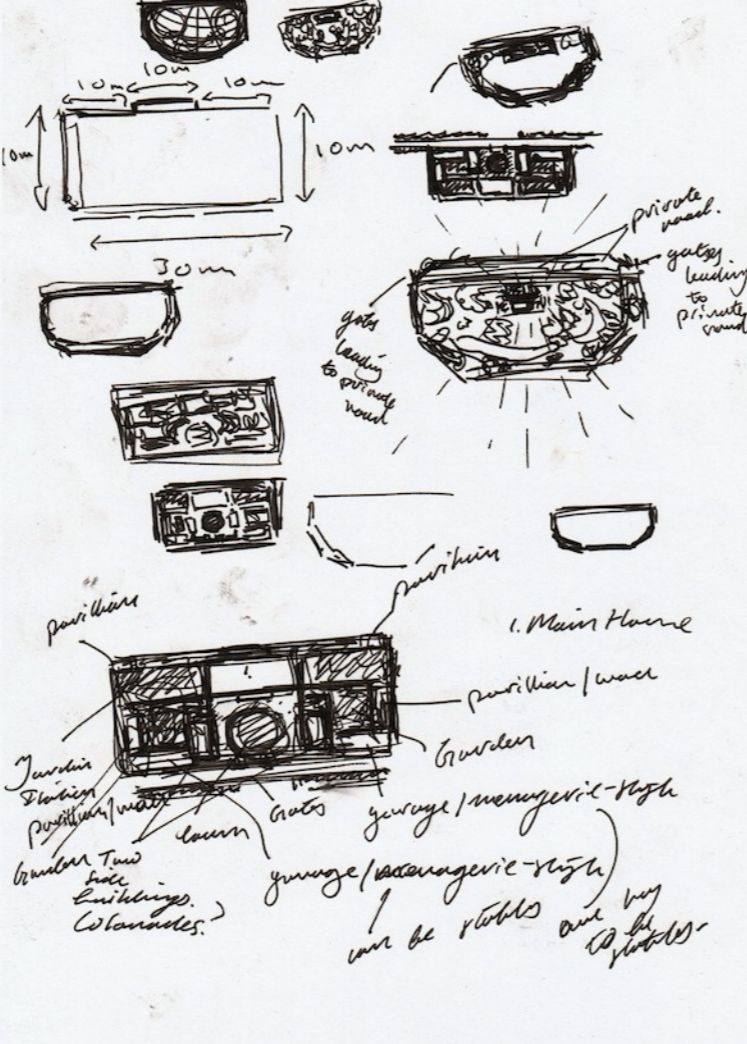 10m
10m
10m
10m
10m
30m
private
road.
gates
leading
to
private
road
gates
leading
to private
road
pavillion
pavilion
1. Main House
pavillion/wall
Garden
Jardin
Italien
pavillion/wall
lawn
Gates
garage/menagerie-style
Garden Two
side
buildings.
(Colonades?)
garage/menagerie-style
can be stables
one may
to be
stables-